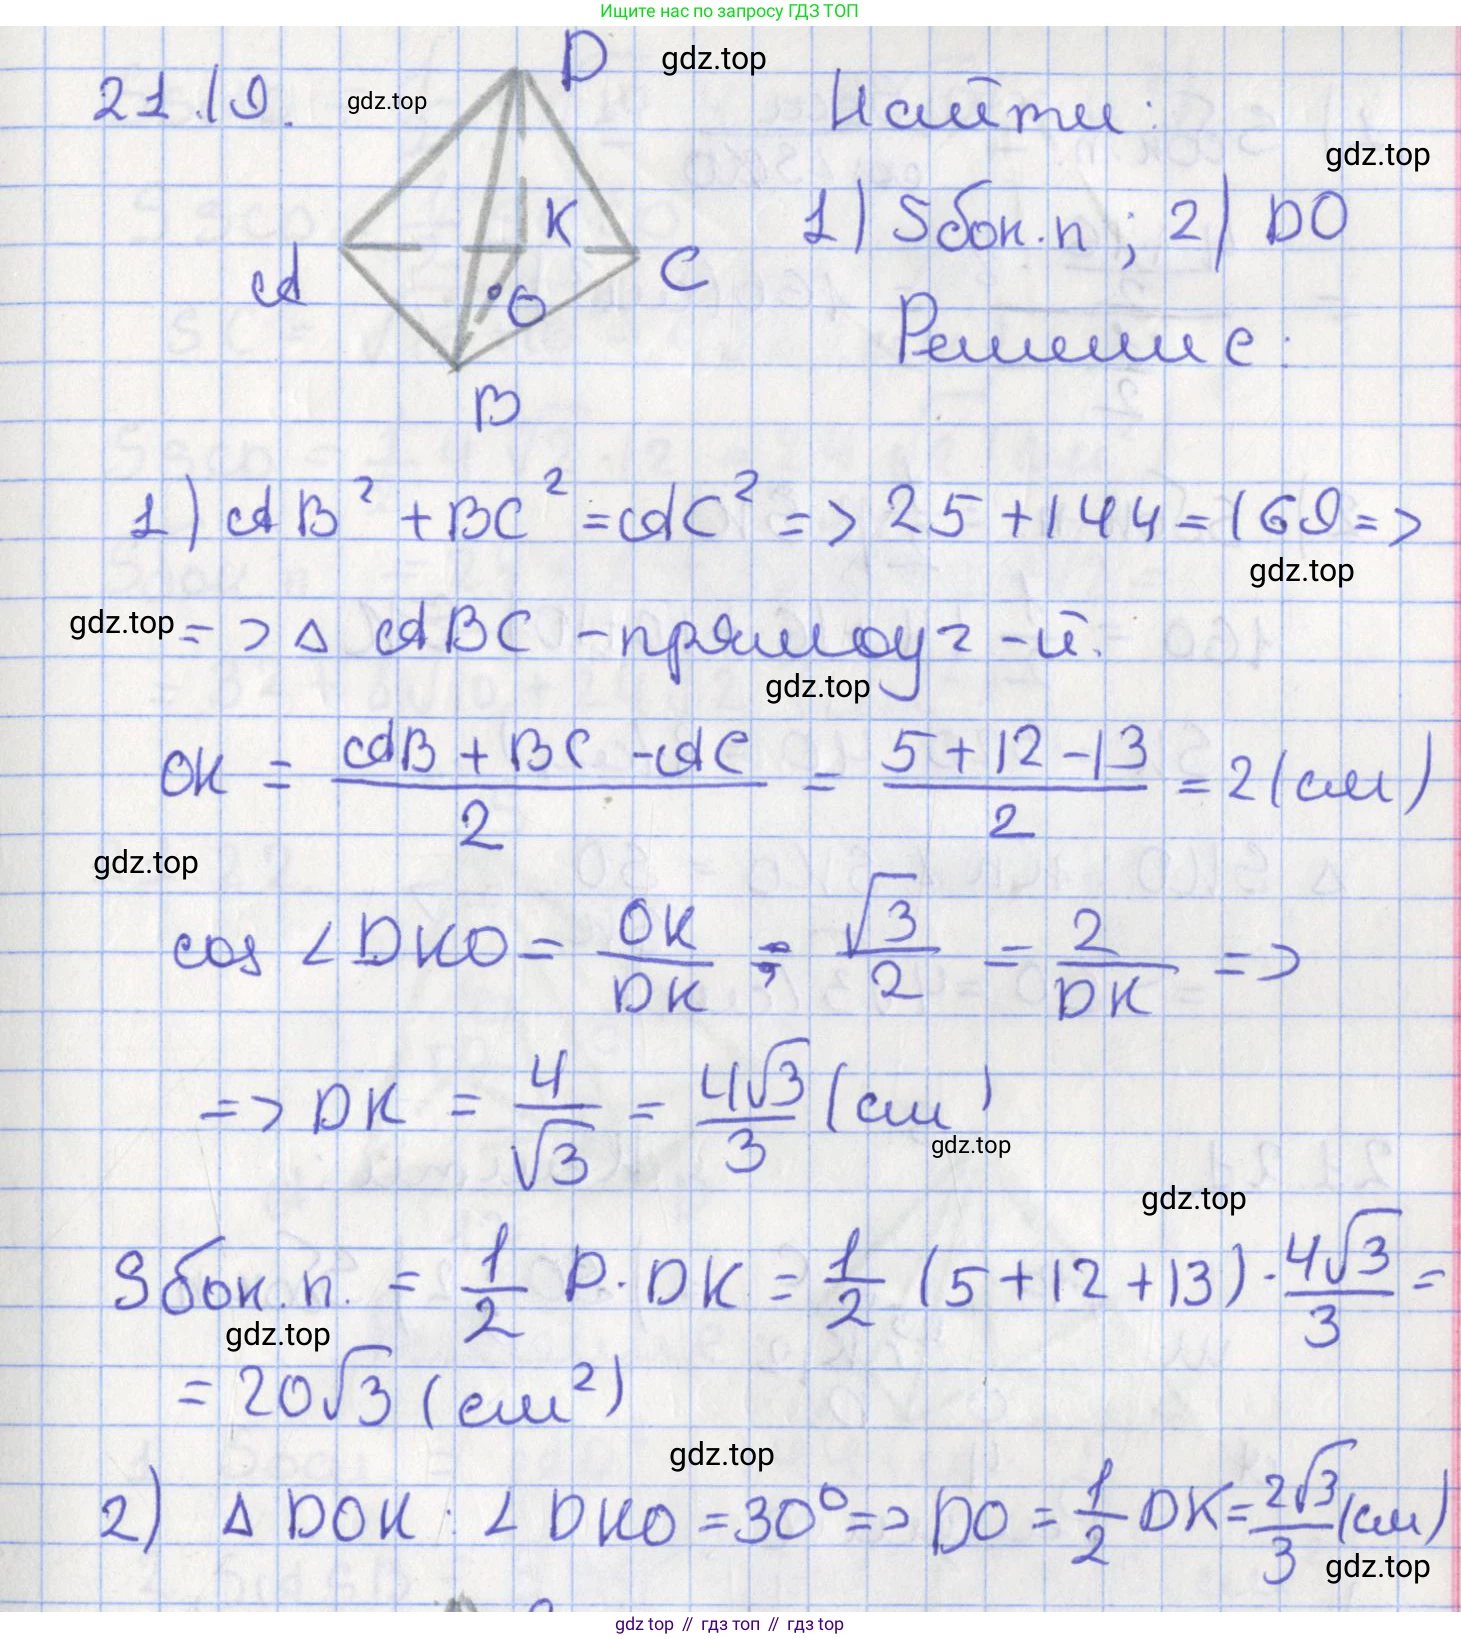 Ищите нас по запросу ГДЗ ТОП
D
gdz.top
21.19.
gdz.top
Найти:
gdz.top
K
1) Sбок.п ; 2) DO
A
C
O
Решение:
B
1) AB² + BC² = AC² => 25 + 144 = 169 =>
gdz.top
gdz.top
=> Δ ABC - прямоуг-й.
gdz.top
OK = \frac{AB + BC - AC}{2} = \frac{5 + 12 - 13}{2} = 2 (см)
gdz.top
cos ∠DKO = \frac{OK}{DK} ; \frac{√3}{2} = \frac{2}{DK} =>
=> DK = \frac{4}{√3} = \frac{4√3}{3} (см)
gdz.top
gdz.top
Sбок.п. = \frac{1}{2} P · DK = \frac{1}{2} (5 + 12 + 13) · \frac{4√3}{3} =
gdz.top
= 20√3 (см²)
gdz.top
2) Δ DOK : ∠ DKO = 30° => DO = \frac{1}{2} DK = \frac{2√3}{3} (см)
gdz.top
gdz top // гдз топ // gdz top